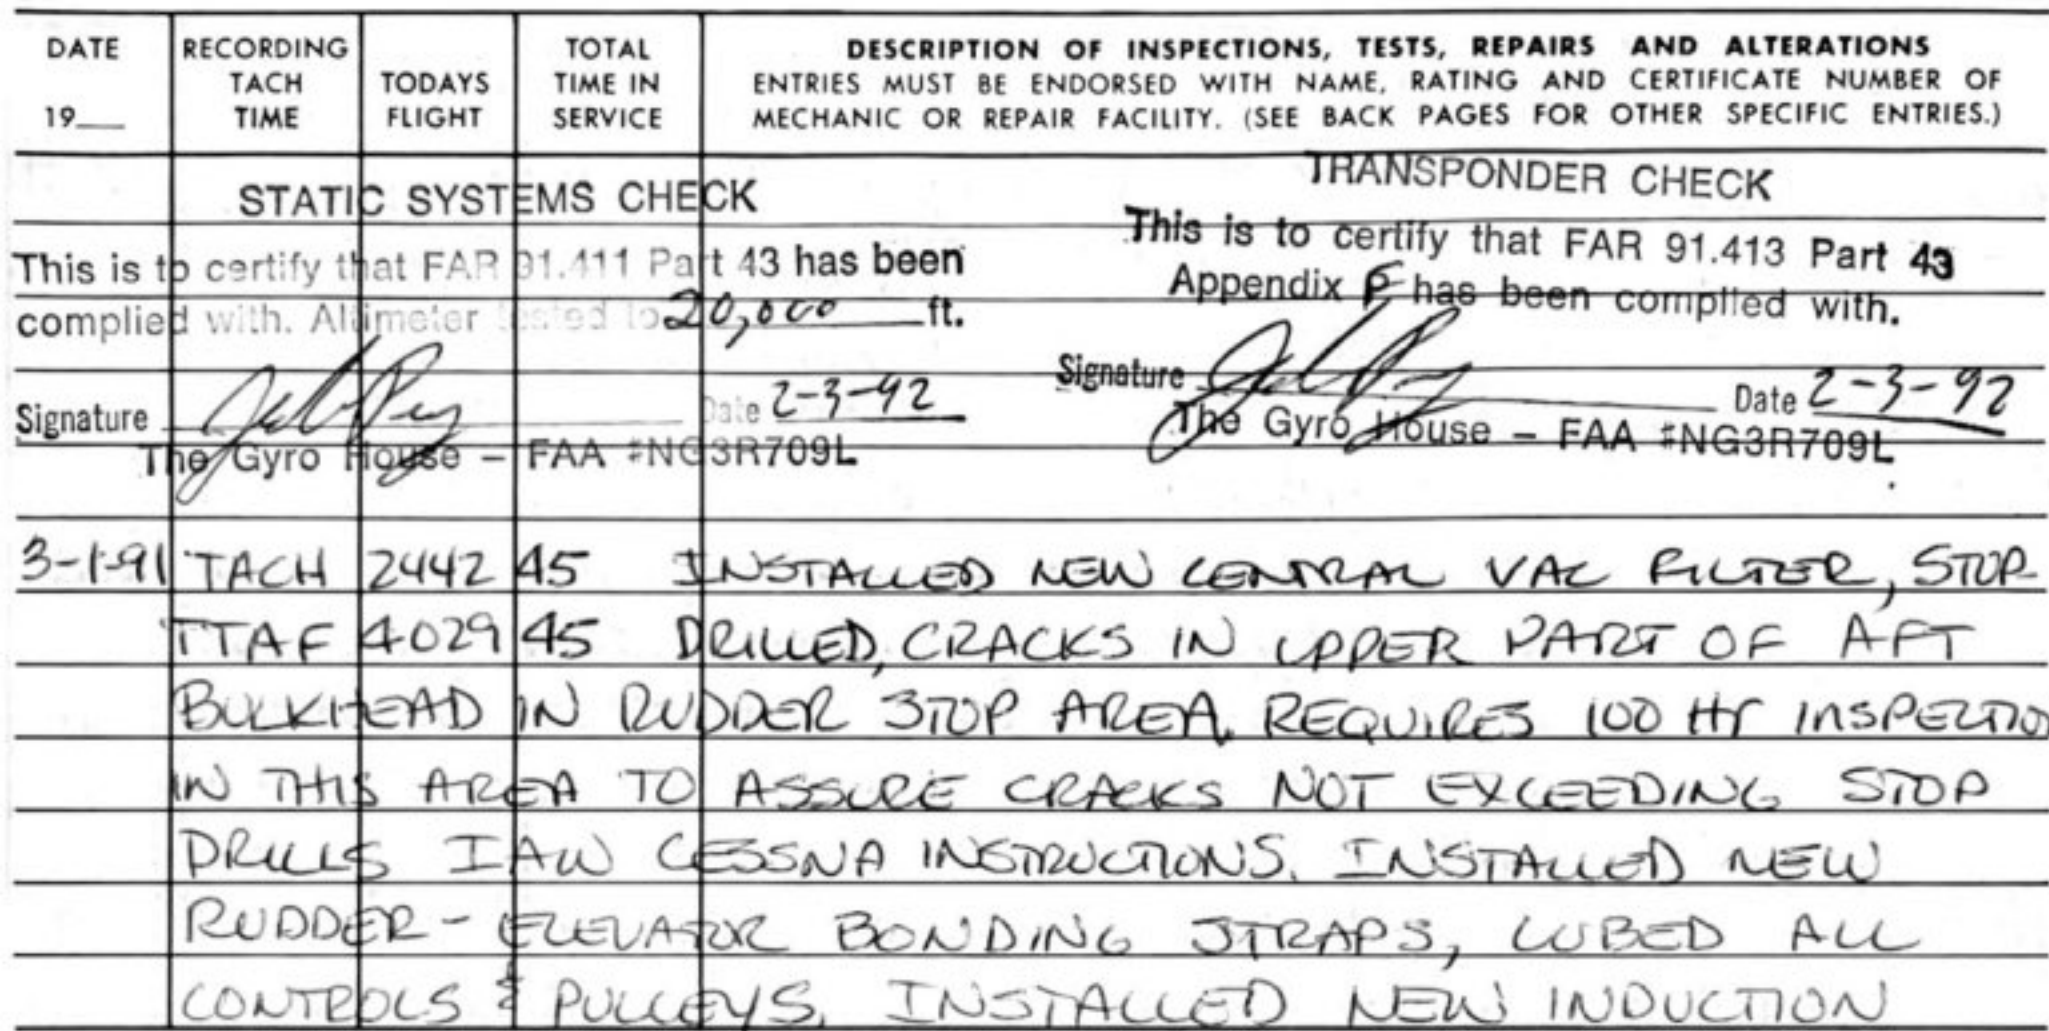 DATE
19__
RECORDING
TACH
TIME
TODAYS
FLIGHT
TOTAL
TIME IN
SERVICE
DESCRIPTION OF INSPECTIONS, TESTS, REPAIRS AND ALTERATIONS
ENTRIES MUST BE ENDORSED WITH NAME, RATING AND CERTIFICATE NUMBER OF
MECHANIC OR REPAIR FACILITY. (SEE BACK PAGES FOR OTHER SPECIFIC ENTRIES.)
STATIC SYSTEMS CHECK
This is to certify that FAR 91.411 Part 43 has been
complied with. Altimeter tested to 20,000 ft.
Signature Date 2-3-92
The Gyro House – FAA #NG3R709L
TRANSPONDER CHECK
This is to certify that FAR 91.413 Part 43
Appendix F has been complied with.
Signature Date 2-3-92
The Gyro House – FAA #NG3R709L
3-1-91 TACH 2442 45 INSTALLED NEW CENTRAL VAC FILTER, STOP-
TTAF 4029 45 DRILLED, CRACKS IN UPPER PART OF AFT
BULKHEAD IN RUDDER STOP AREA, REQUIRES 100 Hr INSPECTIO
IN THIS AREA TO ASSURE CRACKS NOT EXCEEDING STOP
DRILLS IAW CESSNA INSTRUCTIONS. INSTALLED NEW
RUDDER - ELEVATOR BONDING STRAPS, LUBED ALL
CONTROLS & PULLEYS. INSTALLED NEW INDUCTION